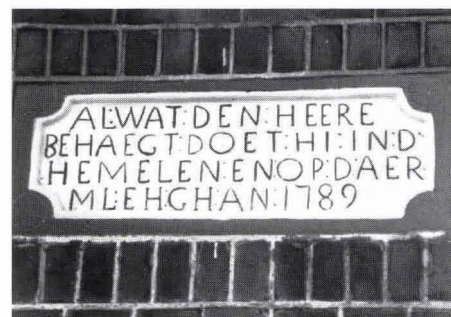 AL:WAT:DEN:HEERE
BEHAEGT:DOET:HI:IN:D
HEMELEN:EN:OP:D:AER
ML:EH:GH:AN:1789